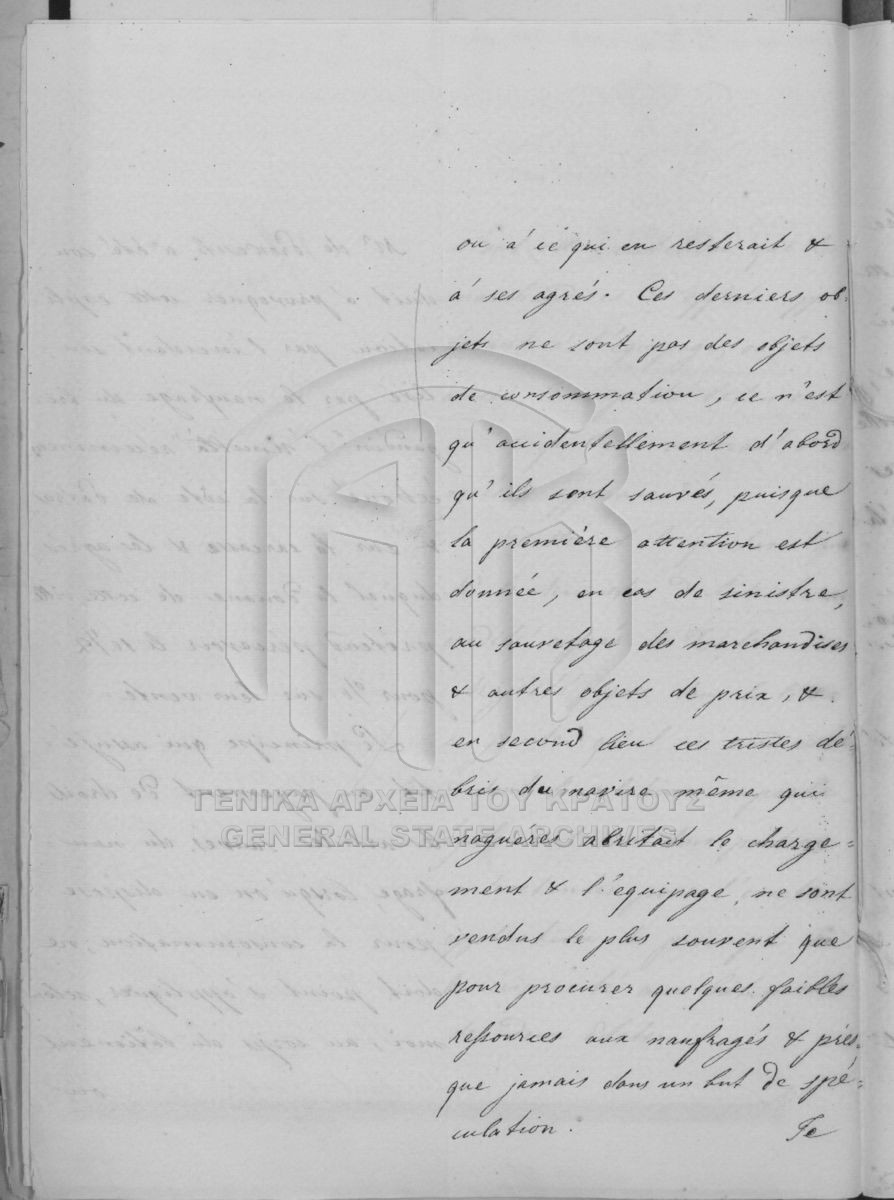 ou à ce qui en resterait &
à ses agrés. Ces derniers ob-
jets ne sont pas des objets
de consommation, ce n'est
qu'accidentellement d'abord
qu'ils sont sauvés, puisque
la première attention est
donnée, en cas de sinistre,
au sauvetage des marchandises
& autres objets de prix, &
en second lieu ces tristes dé-
bris du navire même qui
ΓΕΝΙΚΑ ΑΡΧΕΙΑ ΤΟΥ ΚΡΑΤΟΥΣ
GENERAL STATE ARCHIVES
naguères abritait le charge=
ment & l'équipage, ne sont
vendus le plus souvent que
pour procurer quelques faibles
ressources aux naufragés & pres-
que jamais dans un but de spé=
culation.
Je